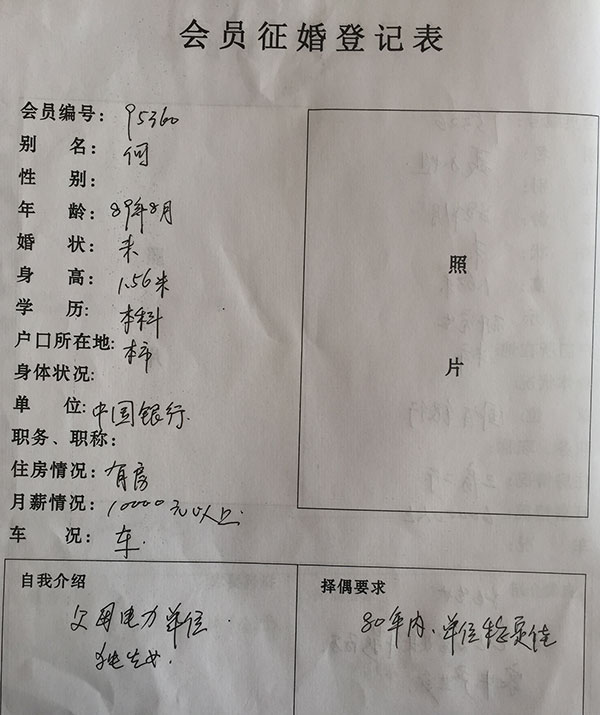 会员征婚登记表
会员编号：95360
别 名：何
性 别：
年 龄：89年8月
婚 状：未
身 高：1.56米
学 历：本科
户口所在地：本市
身体状况：
单 位：中国银行.
职务、职称：
住房情况：有房
月薪情况：10000元以上
车 况：车.
照
片
自我介绍
父母电力单位.
独生女.
择偶要求
80年内、单位稳定佳